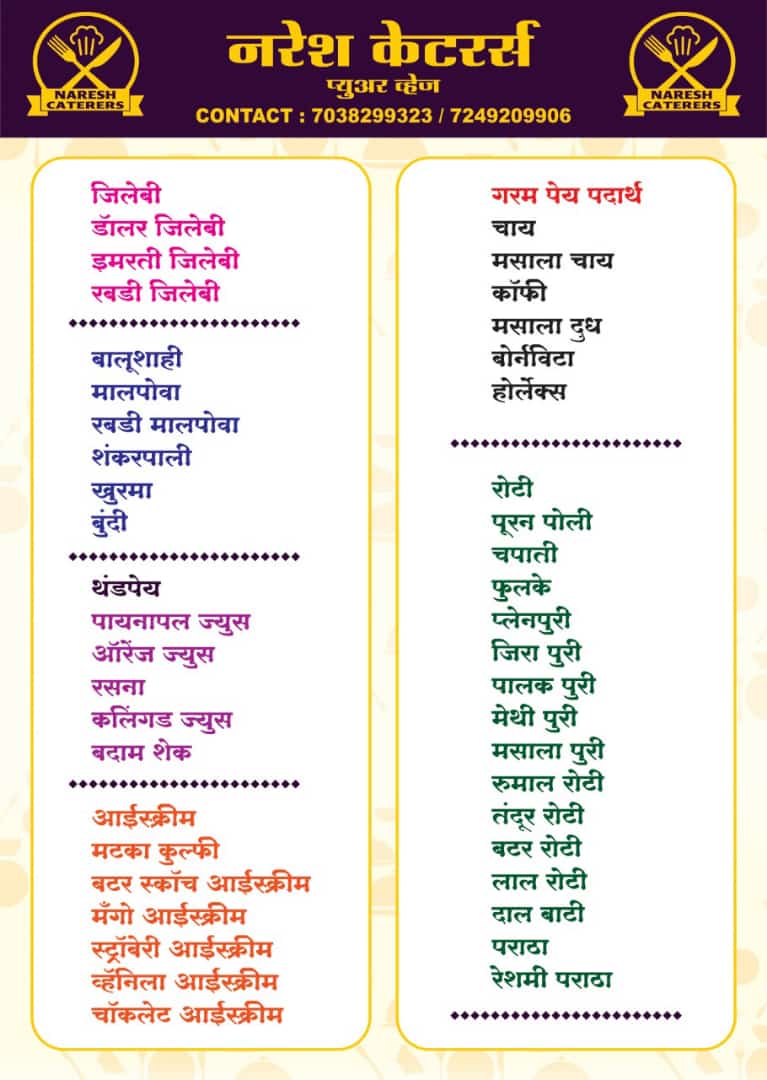 NARESH
CATERERS
नरेश केटरर्स
प्युअर व्हेज
CONTACT : 7038299323 / 7249209906
NARESH
CATERERS
जिलेबी
डॅालर जिलेबी
इमरती जिलेबी
रबडी जिलेबी
बालूशाही
मालपोवा
रबडी मालपोवा
शंकरपाली
खुरमा
बुंदी
थंडपेय
पायनापल ज्युस
ऑरेंज ज्युस
रसना
कलिंगड ज्युस
बदाम शेक
आईस्क्रीम
मटका कुल्फी
बटर स्कॉच आईस्क्रीम
मँगो आईस्क्रीम
स्ट्रॉबेरी आईस्क्रीम
व्हॅनिला आईस्क्रीम
चॉकलेट आईस्क्रीम
गरम पेय पदार्थ
चाय
मसाला चाय
कॉफी
मसाला दुध
बोर्नविटा
होर्लेक्स
रोटी
पूरन पोली
चपाती
फुलके
प्लेनपुरी
जिरा पुरी
पालक पुरी
मेथी पुरी
मसाला पुरी
रुमाल रोटी
तंदूर रोटी
बटर रोटी
लाल रोटी
दाल बाटी
पराठा
रेशमी पराठा